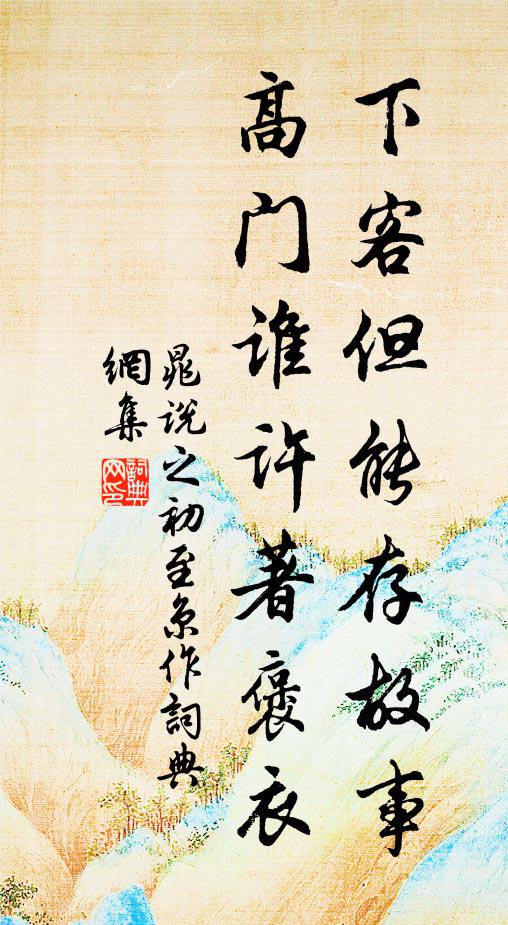 下客但能存故事
高门谁许著褒衣
晁说之初至京作詞典
網集
詞典网印